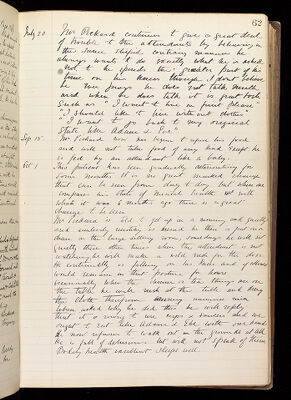 62
July 20 Mr Pickard continues to give a great deal
of trouble to the attendants by behaving in
the same stupid contrary manner he
always wants to do exactly what he is asked
not to he spends the greater part of his
time on his knees though I dont believe
he ever prays he does not talk much
and when he does talk it is great rot
Such as "I want to live in purest please"
"I should like to live without clothes"
"I want to go back to my original
State like Adam & Eve."
Sep. 15 Mr Pickard now has begun to refuse food
and will not take food of any kind except he
is fed by an attendant like a baby.
Oct 1 This patient has been gradually deteriorating for
Some months It is no great marked change
that can be seen from day to day but when we
compare his state of mental health with
what it was 6 months ago there is a great
change to be seen.
Mr Pickard is told to get up in a morning and quietly
and sullenly
chair in the large sitting room, sometimes he will sit
quietly there other times when the attendant is not
watching he will make a wild rush for the door
He continually is falling on his knees and if allowed
would remain in that position for hours
Occasionally when the dinner or tea things are on
the table he will rush at the table and drag
the cloth
when asked why he did this he will reply
that it is wrong to use cups & saucers and we
ought to eat like Adam & Eve with our hands
He now refuses to walk out in the grounds at all
He is full of delusions but will not speak of them
Bodily health excellent sleeps well.